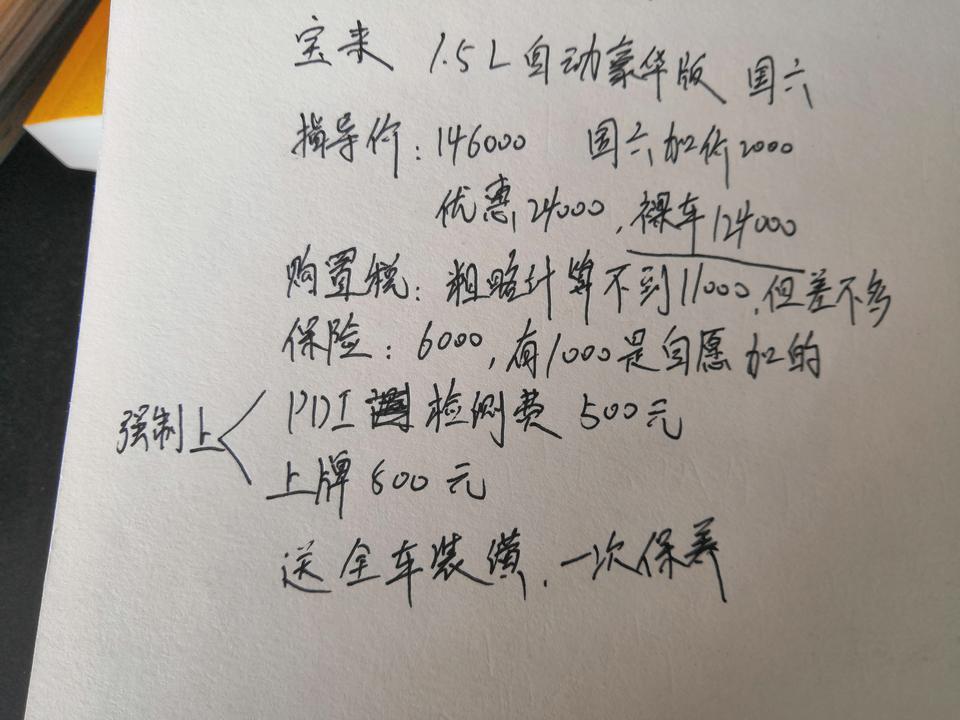 宝来 1.5L自动豪华版 国六
指导价：146000 国六加价2000
优惠24000，裸车124000
购置税：粗略计算不到11000，但差不多
保险：6000，有1000是自愿加的
强制上 PDI 检测费 500元
上牌 600元
送全车装潢，一次保养